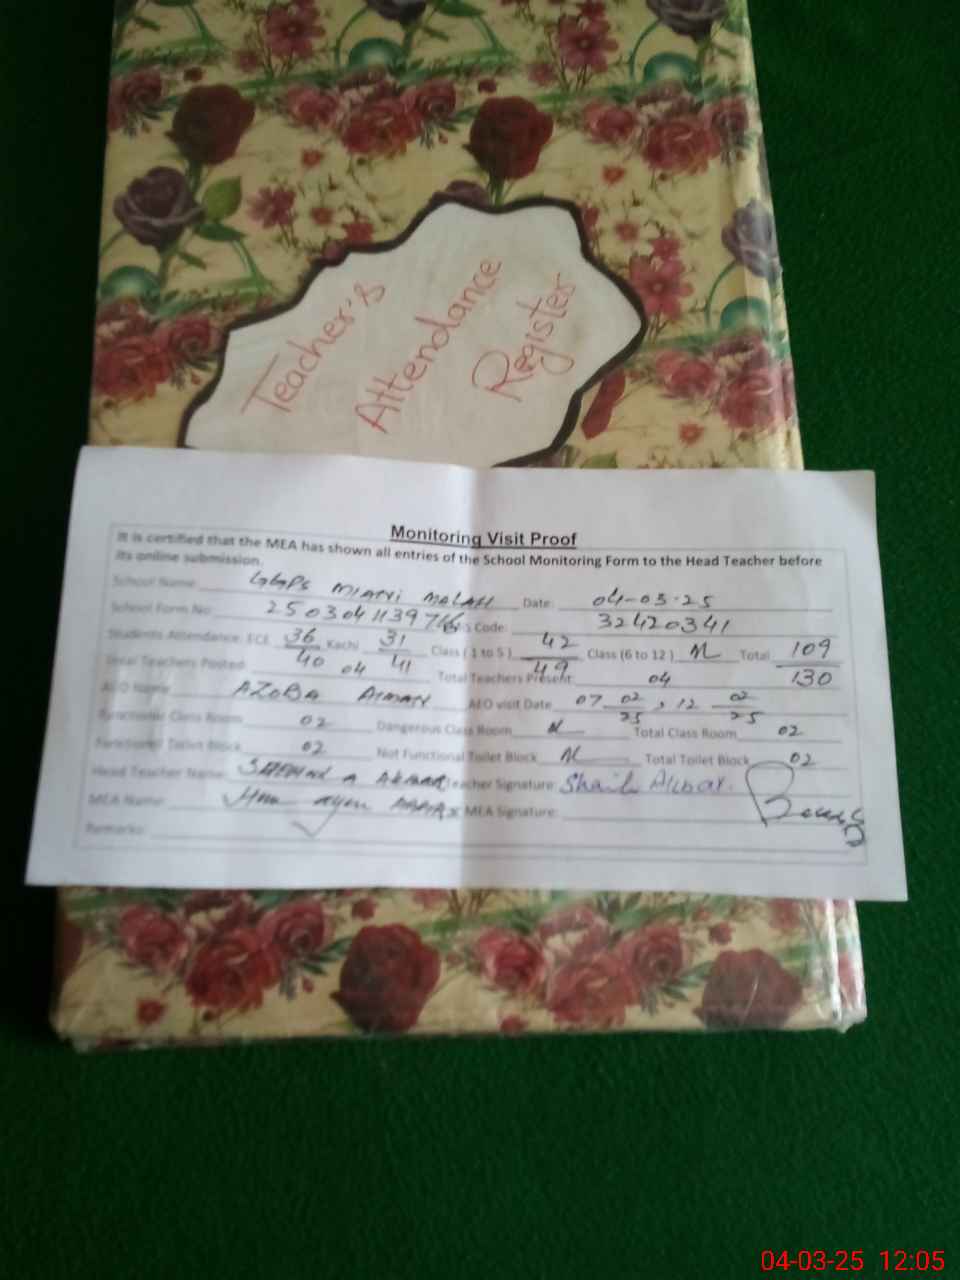 Teacher's
Attendance
Register
Monitoring Visit Proof
It is certified that the MEA has shown all entries of the School Monitoring Form to the Head Teacher before
its online submission.
School Name: GGPS MIANI MALAH Date: 04-03-25
School Form No: S Code: 32420341
Students Attendance: ECE 36/40 Kachi 31/41 Class (1 to 5) 42/49 Class (6 to 12) Total 109/130
Total Teachers Posted: 04 Total Teachers Present 04
AEO Name AEO visit Date 07 02/25, 12 02/25
Functional Class Room 02 Dangerous Class Room Total Class Room 02
Functional Toilet Block 02 Not Functional Toilet Block Total Toilet Block 02
Head Teacher Name: Teacher Signature:
MEA Name: MEA Signature:
Remarks:
04-03-25 12:05